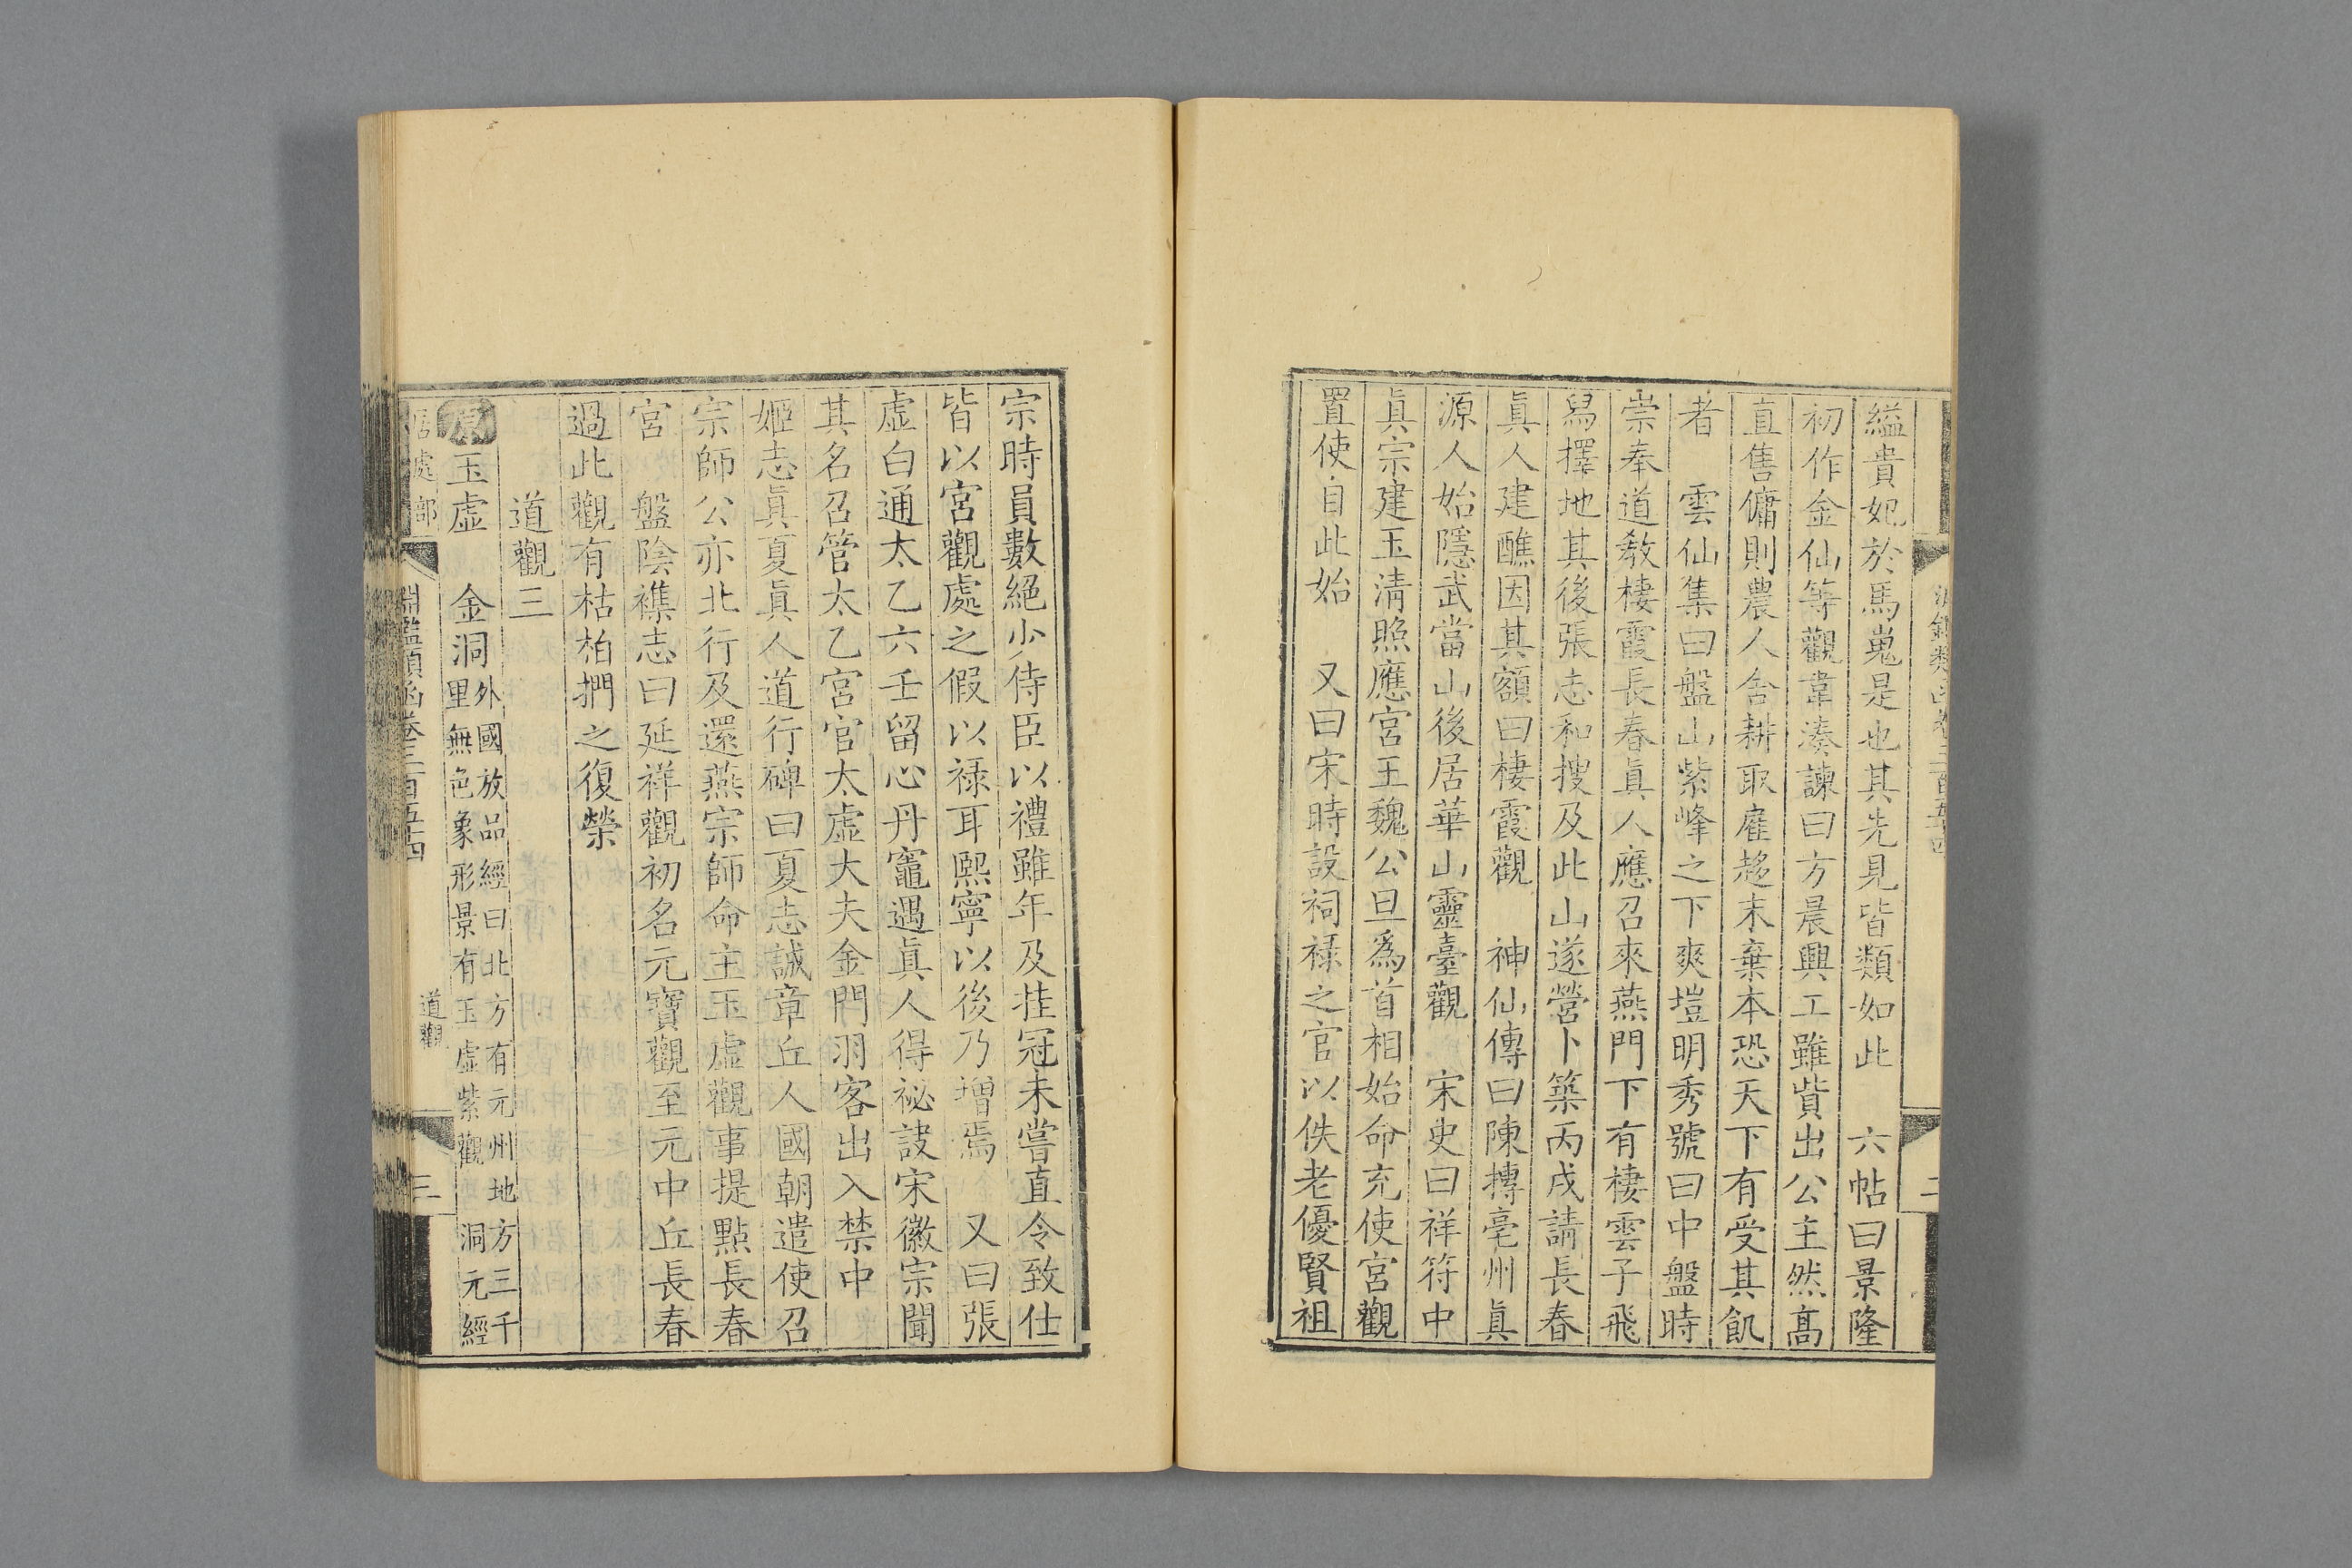 縊貴妃於馬嵬是也其先見皆類如此　六帖曰景隆
初作金仙等觀韋湊諫曰方晨興工雖貲出公主然髙
直售傭則農人舍耕取雇趍末棄本恐天下有受其飢
者　雲仙集曰盤山紫峰之下爽塏明秀號曰中盤時
崇奉道敎棲霞長春眞人應召來燕門下有棲雲子飛
舄擇地其後張志和搜及此山遂營卜築丙戌請長春
眞人建醮因其額曰棲霞觀　神仙傳曰陳摶亳州眞
源人始隱武當山後居華山靈臺觀　宋史曰祥符中
眞宗建玉淸照應宮王魏公旦爲首相始命充使宮觀
置使自此始　又曰宋時設祠祿之官以佚老優賢祖
宗時員數絕少侍臣以禮雖年及挂冠未嘗直令致仕
皆以宮觀處之假以祿耳熙寧以後乃增焉　又曰張
虛白通太乙六壬留心丹竈遇眞人得祕訣宋徽宗聞
其名召管太乙宮官太虛大夫金門羽客出入禁中
姬志眞夏眞人道行碑曰夏志誠章丘人國朝遣使召
宗師公亦北行及還燕宗師命主玉虛觀事提點長春
宮　盤陰襍志曰延祥觀初名元寶觀至元中丘長春
過此觀有枯柏捫之復榮
道觀三
原玉虛　金洞外國放品經曰北方有元州地方三千
里無色象形景有玉虛紫觀　洞元經
居處部　淵鑑類函卷三百五十四　道觀　三